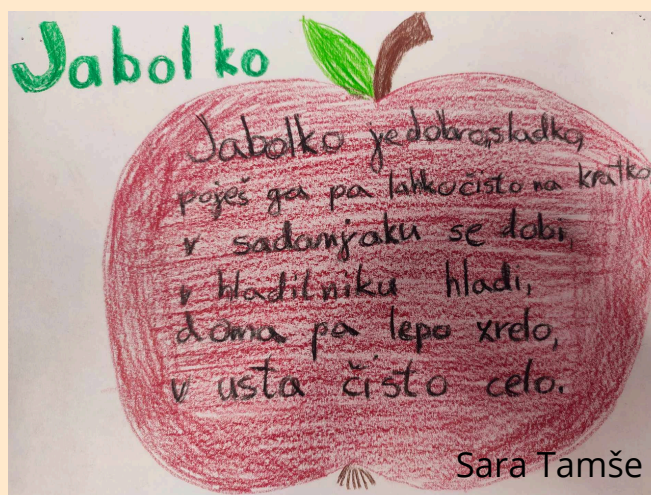 Jabolko
Jabolko je dobro, sladko,
poješ ga pa lahko čisto na kratko
v sadomjaku se dobi,
v hladilniku hladi,
doma pa lepo zrelo,
v usta čisto celo.
Sara Tamše